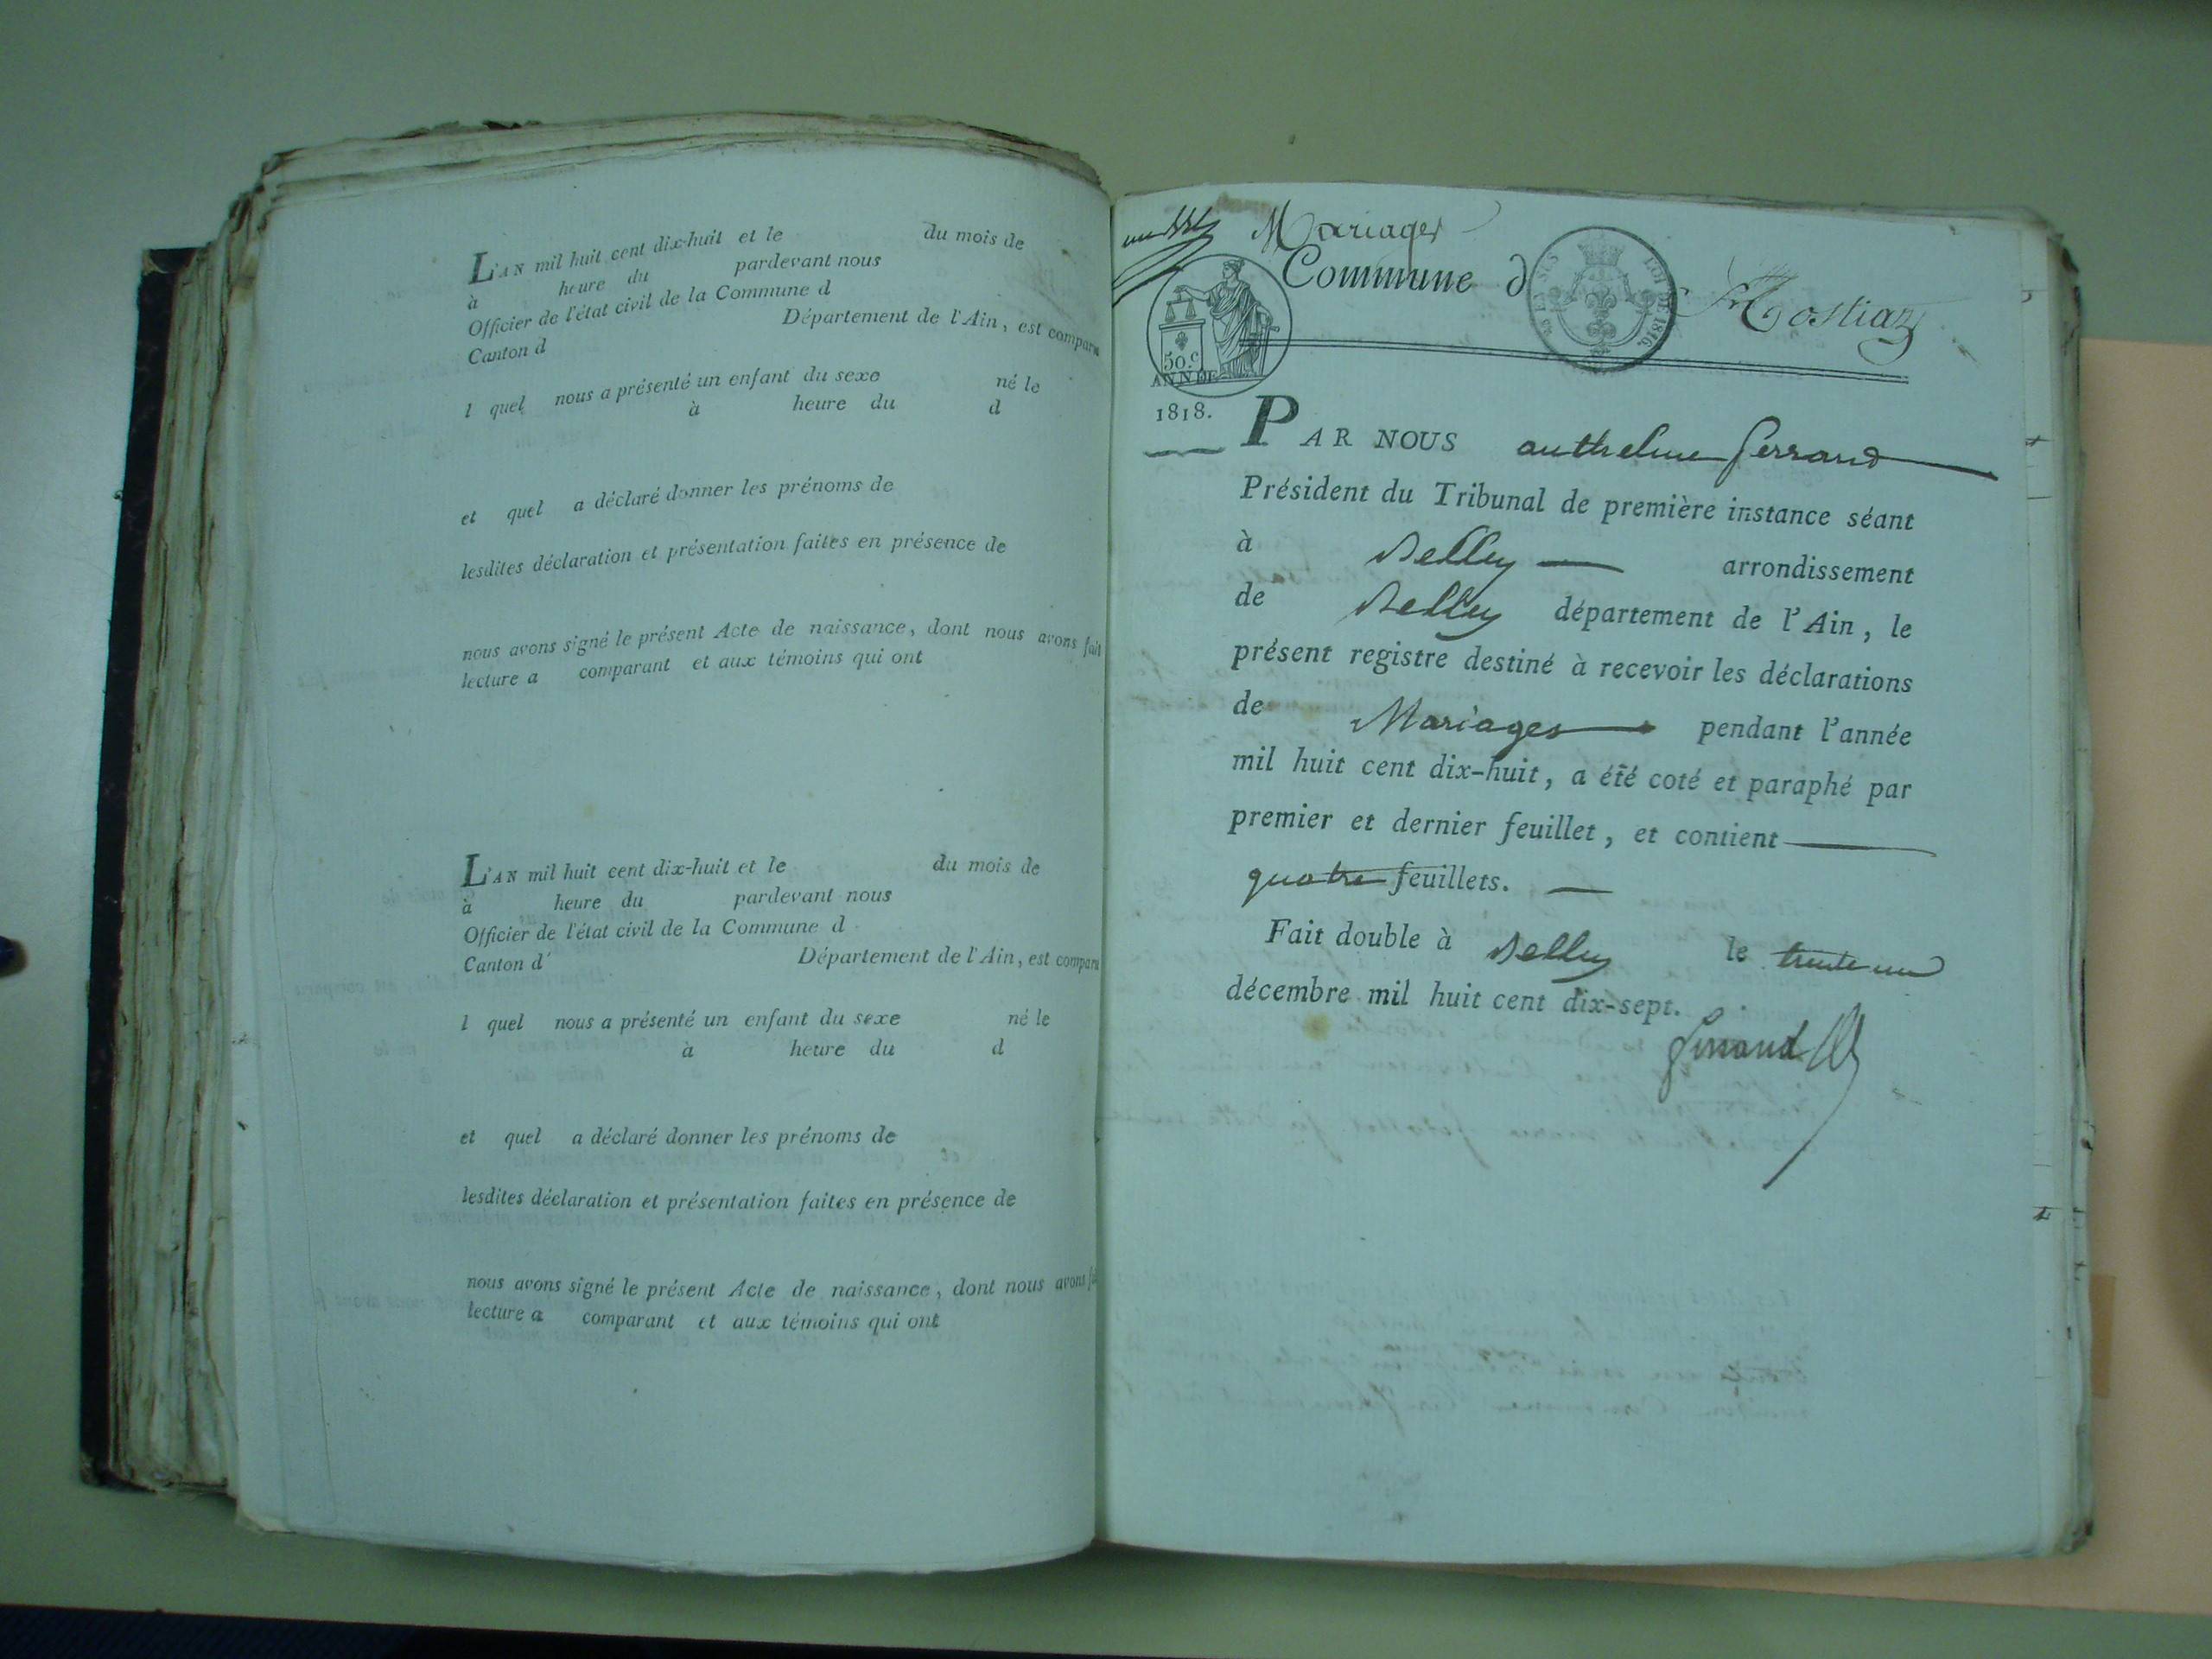 L'AN mil huit cent dix-huit et le du mois de
à heure du pardevant nous
Officier de l'état civil de la Commune d
Canton d Département de l'Ain, est comparu
l quel nous a présenté un enfant du sexe né le
à heure du d
et quel a déclaré donner les prénoms de
lesdites déclaration et présentation faites en présence de
nous avons signé le présent Acte de naissance, dont nous avons fait
lecture a comparant et aux témoins qui ont
L'AN mil huit cent dix-huit et le du mois de
à heure du pardevant nous
Officier de l'état civil de la Commune d
Canton d Département de l'Ain, est comparu
l quel nous a présenté un enfant du sexe né le
à heure du d
et quel a déclaré donner les prénoms de
lesdites déclaration et présentation faites en présence de
nous avons signé le présent Acte de naissance, dont nous avons
lecture a comparant et aux témoins qui ont
Mariages
Commune d'hostiaz
LOI DE 1816.
50.c
ANN DE
1818.
PAR NOUS anthelme ferrand
Président du Tribunal de première instance séant
à Belley arrondissement
de Belley département de l'Ain, le
présent registre destiné à recevoir les déclarations
de Mariages pendant l'année
mil huit cent dix-huit, a été coté et paraphé par
premier et dernier feuillet, et contient
quatre feuillets.
Fait double à Belley le trente un
décembre mil huit cent dix-sept.
ferrand